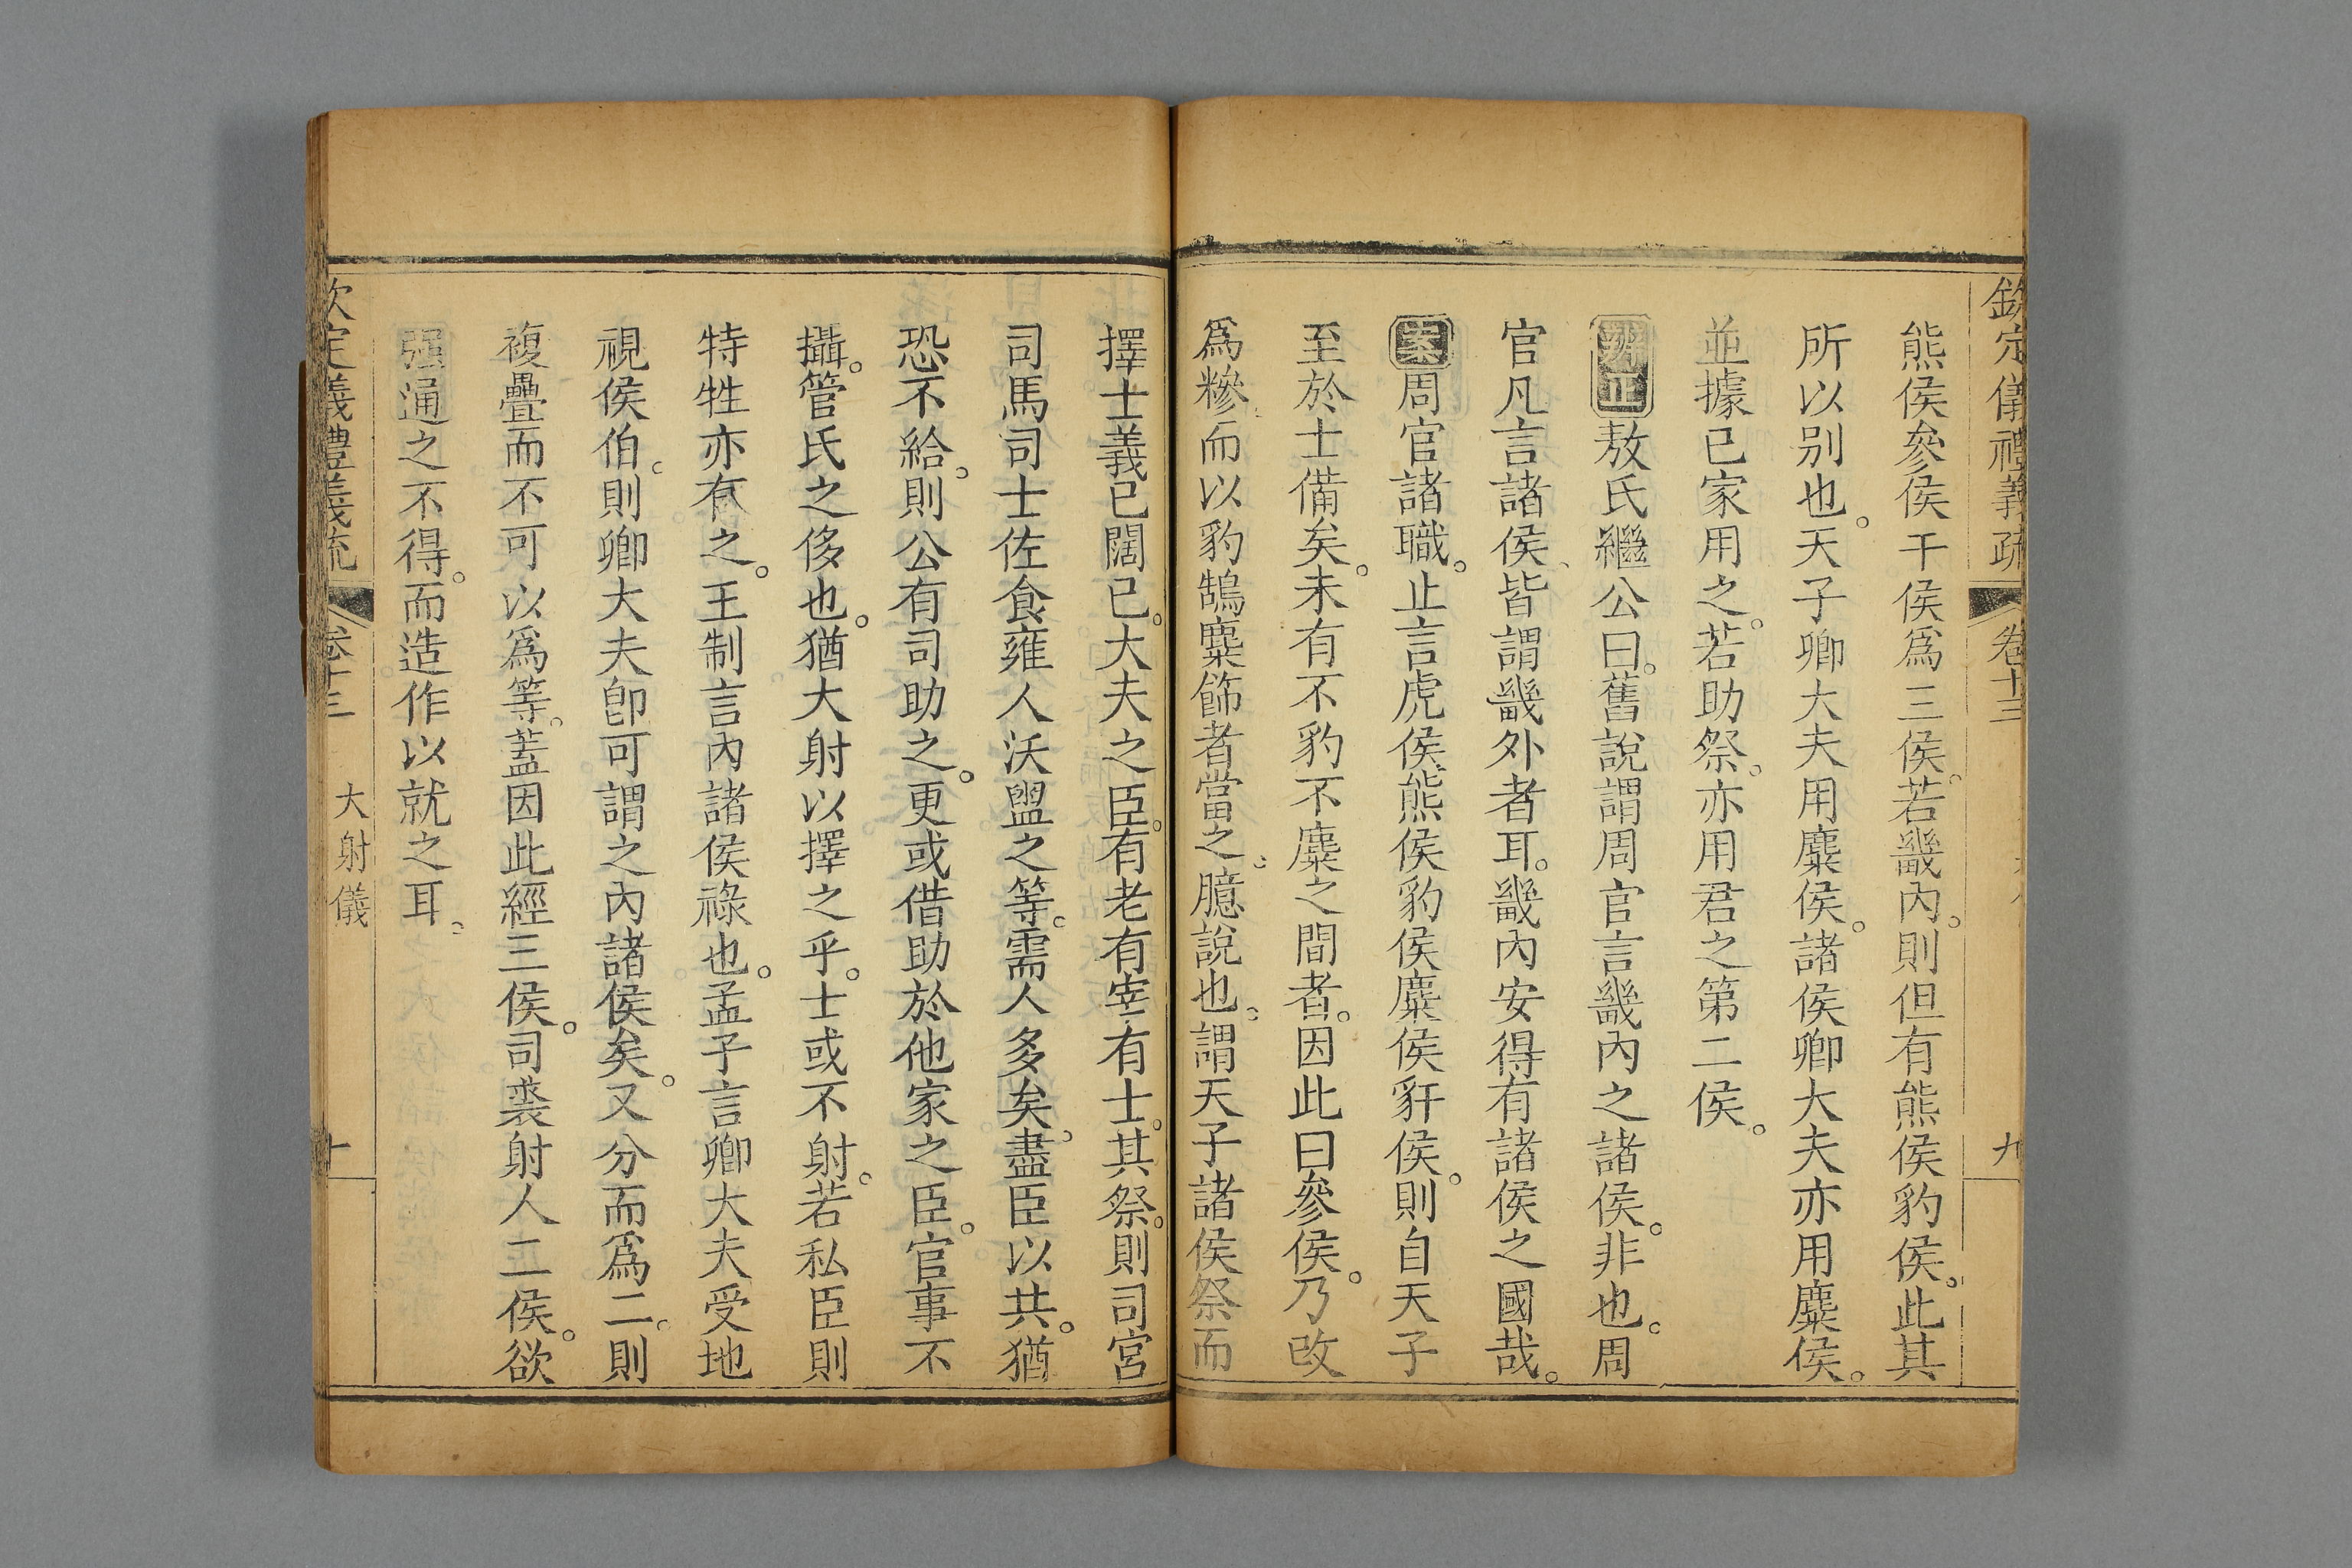 欽定儀禮義疏 卷十三 九
熊侯參侯干侯爲三侯。若畿內。則但有熊侯豹侯。此其
所以別也。天子卿大夫用麋侯。諸侯卿大夫亦用麋侯。
並據已家用之。若助祭。亦用君之第二侯。
辨正敖氏繼公曰。舊說謂周官言畿內之諸侯。非也。周
官凡言諸侯、皆謂畿外者耳。畿內安得有諸侯之國哉。
案周官諸職。止言虎侯熊侯豹侯麋侯豻侯。則自天子
至於士備矣。未有不豹不麋之間者。因此曰參侯。乃改
爲糝。而以豹鵠麋飾者當之。臆說也。謂天子諸侯祭而
擇士義已闊已。大夫之臣。有老有宰有士。其祭。則司宮
司馬司士佐食雍人沃盥之等。需人多矣。盡臣以共。猶
恐不給。則公有司助之。更或借助於他家之臣。官事不
攝。管氏之侈也。猶大射以擇之乎。士或不射。若私臣則
特牲亦有之。王制言內諸侯祿也。孟子言卿大夫受地
視侯伯。則卿大夫卽可謂之內諸侯矣。又分而爲二。則
複疊而不可以爲等。蓋因此經三侯。司裘射人二侯。欲
强通之不得。而造作以就之耳。
欽定義禮義疏 卷十三 大射儀 十